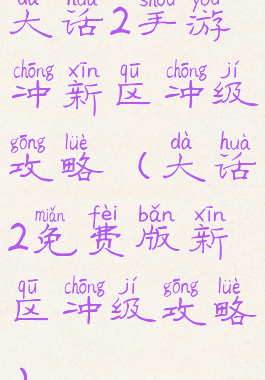 dà huà shǒu yóu
大话2手游
chōng xīn qū chōng jí
冲新区冲级
gōng lüè dà huà
攻略(大话
miǎn fèi bǎn xīn
2免费版新
qū chōng jí gōng lüè
区冲级攻略
)